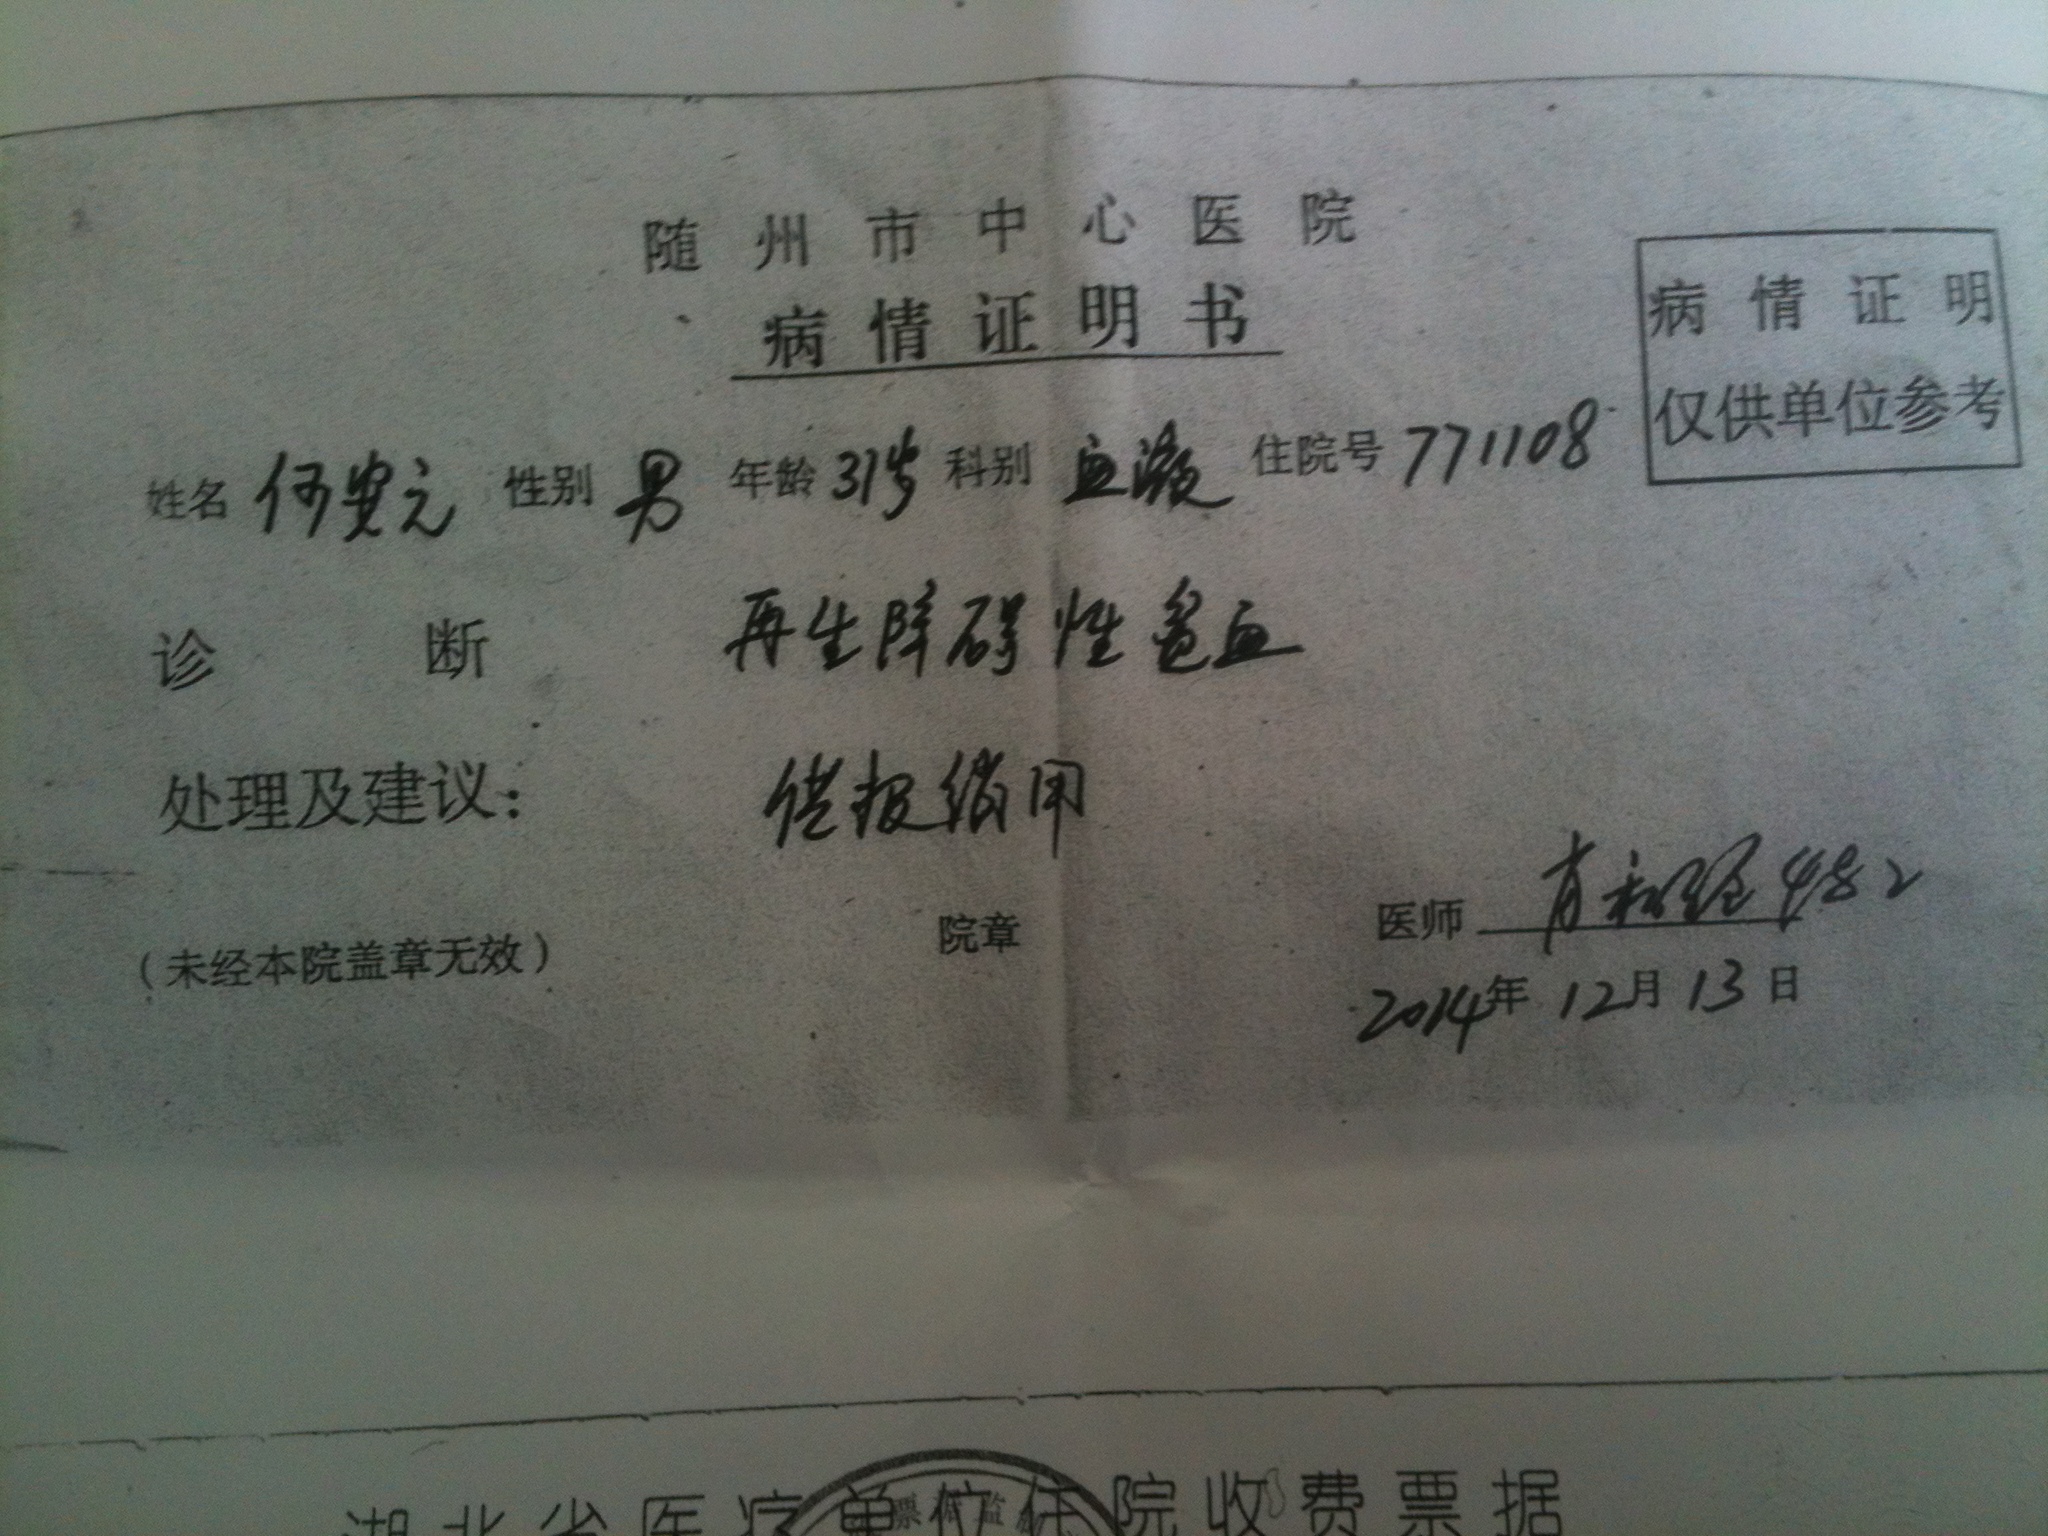 随州市中心医院
病情证明书
病情证明
仅供单位参考
姓名 何安元 性别 男 年龄 31岁 科别 血液 住院号 771108
诊断 再生障碍性贫血
处理及建议： 供报销用
（未经本院盖章无效） 院章 医师 肖
2014年12月13日
湖北省医疗单位住院收费票据